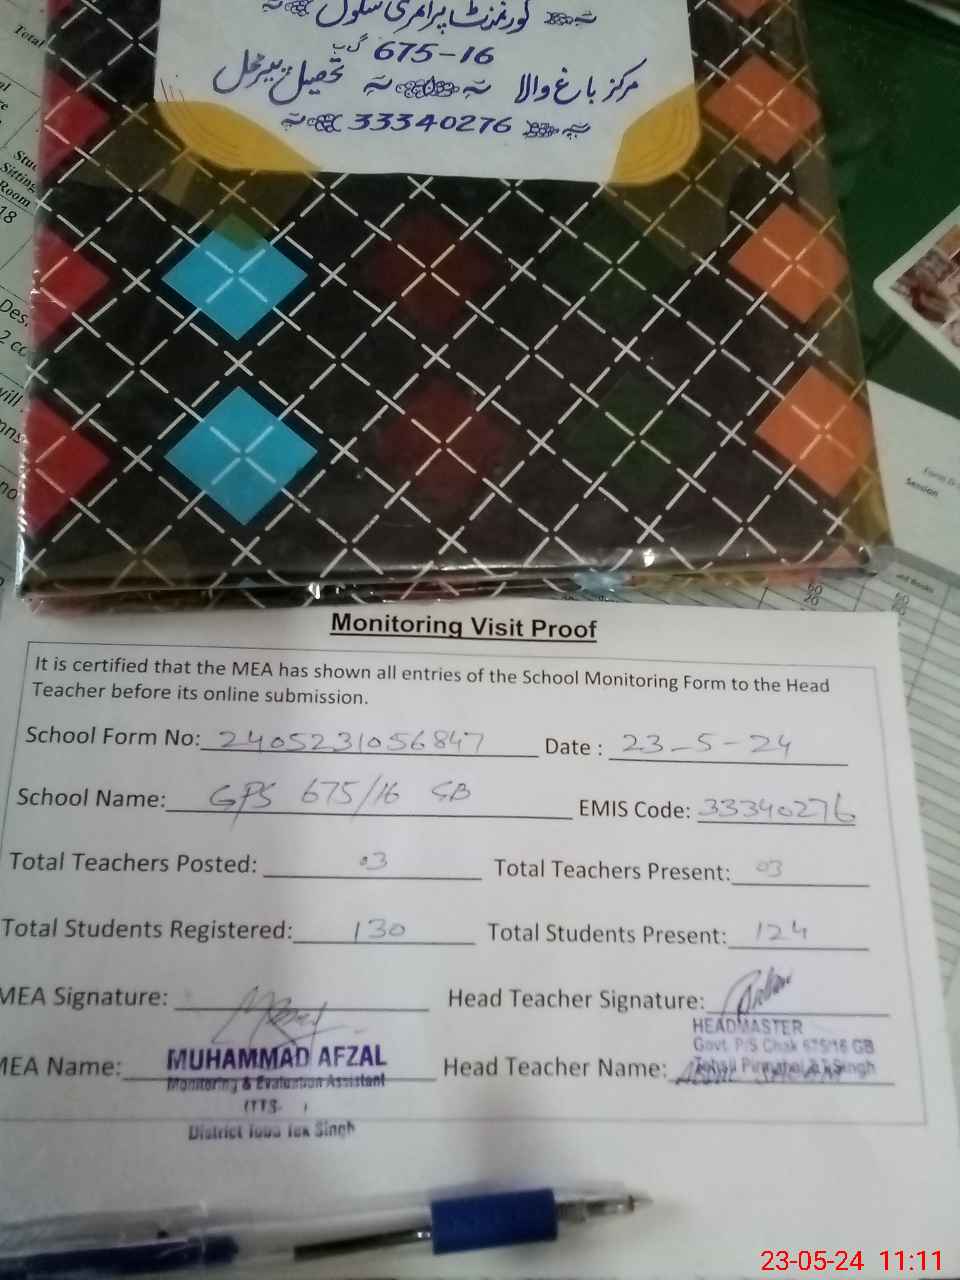 گورنمنٹ پرائمری سکول
675-16 گ ب
مرکز باغ والا تحصیل پیرمحل
33340276
Total
Stu
Sitting
Room
18
Des
2 co
will
no
Form D
Session
60
20
60
Monitoring Visit Proof
It is certified that the MEA has shown all entries of the School Monitoring Form to the Head
Teacher before its online submission.
School Form No: 2405231056847 Date : 23-5-24
School Name: GPS 675/16 GB EMIS Code: 33340276
Total Teachers Posted: 03 Total Teachers Present: 03
Total Students Registered: 130 Total Students Present: 124
MEA Signature: Head Teacher Signature:
HEADMASTER
Govt. P/S Chak 675/16 GB
MEA Name: MUHAMMAD AFZAL Head Teacher Name: Tehsil Pirmahal T.T.Singh
Monitoring & Evaluation Assistant
(TTS- )
District Toba Tek Singh
23-05-24 11:11